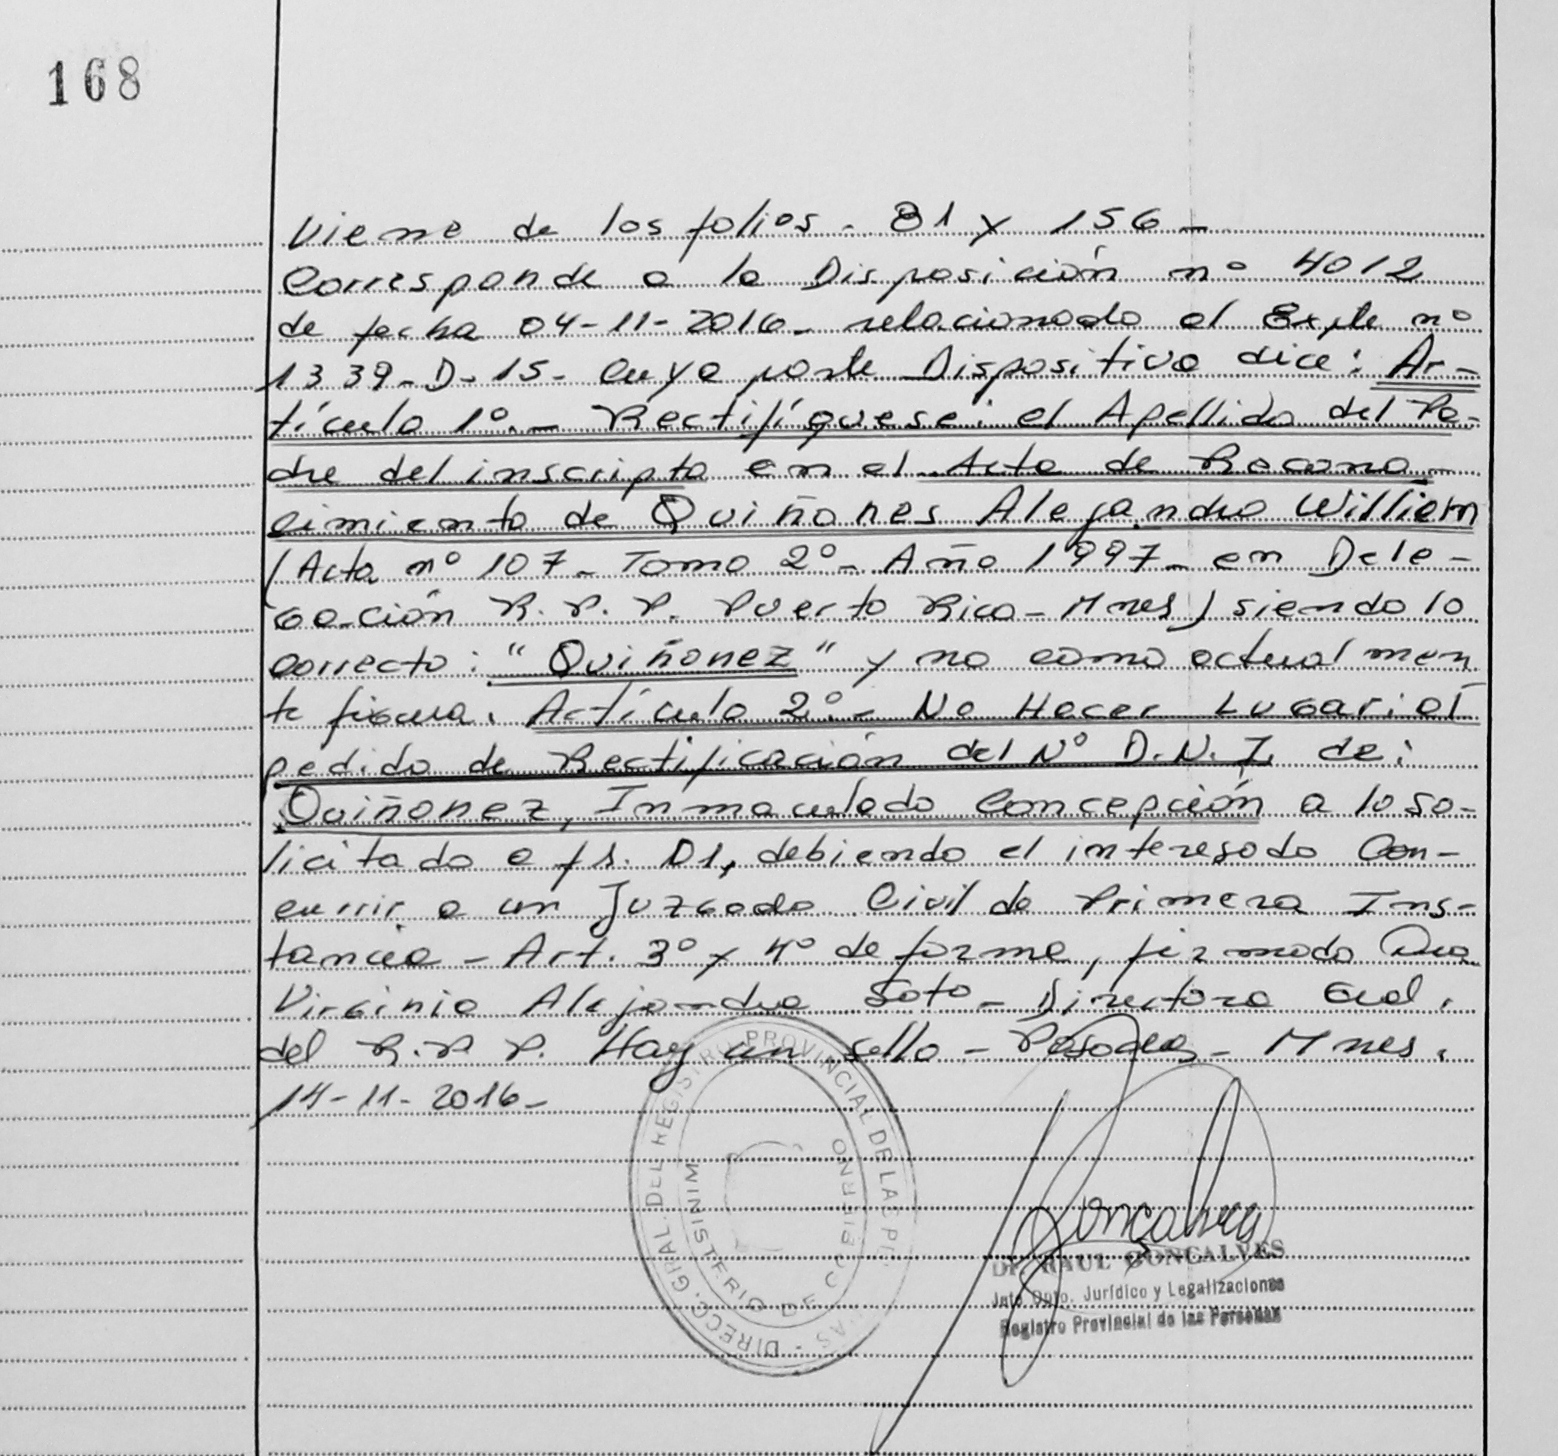 168
Viene de los folios - 81 y 156 -
Corresponde a la Disposición nº 4012
de fecha 04-11-2016- relacionado al Expte nº
1339-D-15- cuya parte Dispositiva dice: Ar-
tículo 1º.- Rectifíquese: el Apellido del Pa-
dre del inscripto en el Acta de Recono-
cimiento de Quiñones Alejandro William
(Acta nº 107- Tomo 2º- Año 1997- en Dele-
gación R.P.P. Puerto Rico- Mnes) siendo lo
correcto: "Quiñonez" y no como actualmen
te figura. Artículo 2º.- No Hacer Lugar: al
pedido de Rectificación del Nº D.N.I. de:
Quiñonez, Inmaculado Concepción a lo so-
licitado a fs. 01, debiendo el interesado Con-
currir a un Juzgado Civil de Primera Ins-
tancia - Art. 3º y 4º de forma, firmado Dra
Virginia Alejandra Soto- Directora Gral.
del R.P.P. Hay un sello - Posadas- Mnes.
14-11-2016-
DIRECC. GRAL. DEL REGISTRO PROVINCIAL DE LAS
MINISTERIO DE GOBIERNO
Goncalves
Dr. RAUL GONCALVES
Jefe Dpto. Jurídico y Legalizaciones
Registro Provincial de las Personas